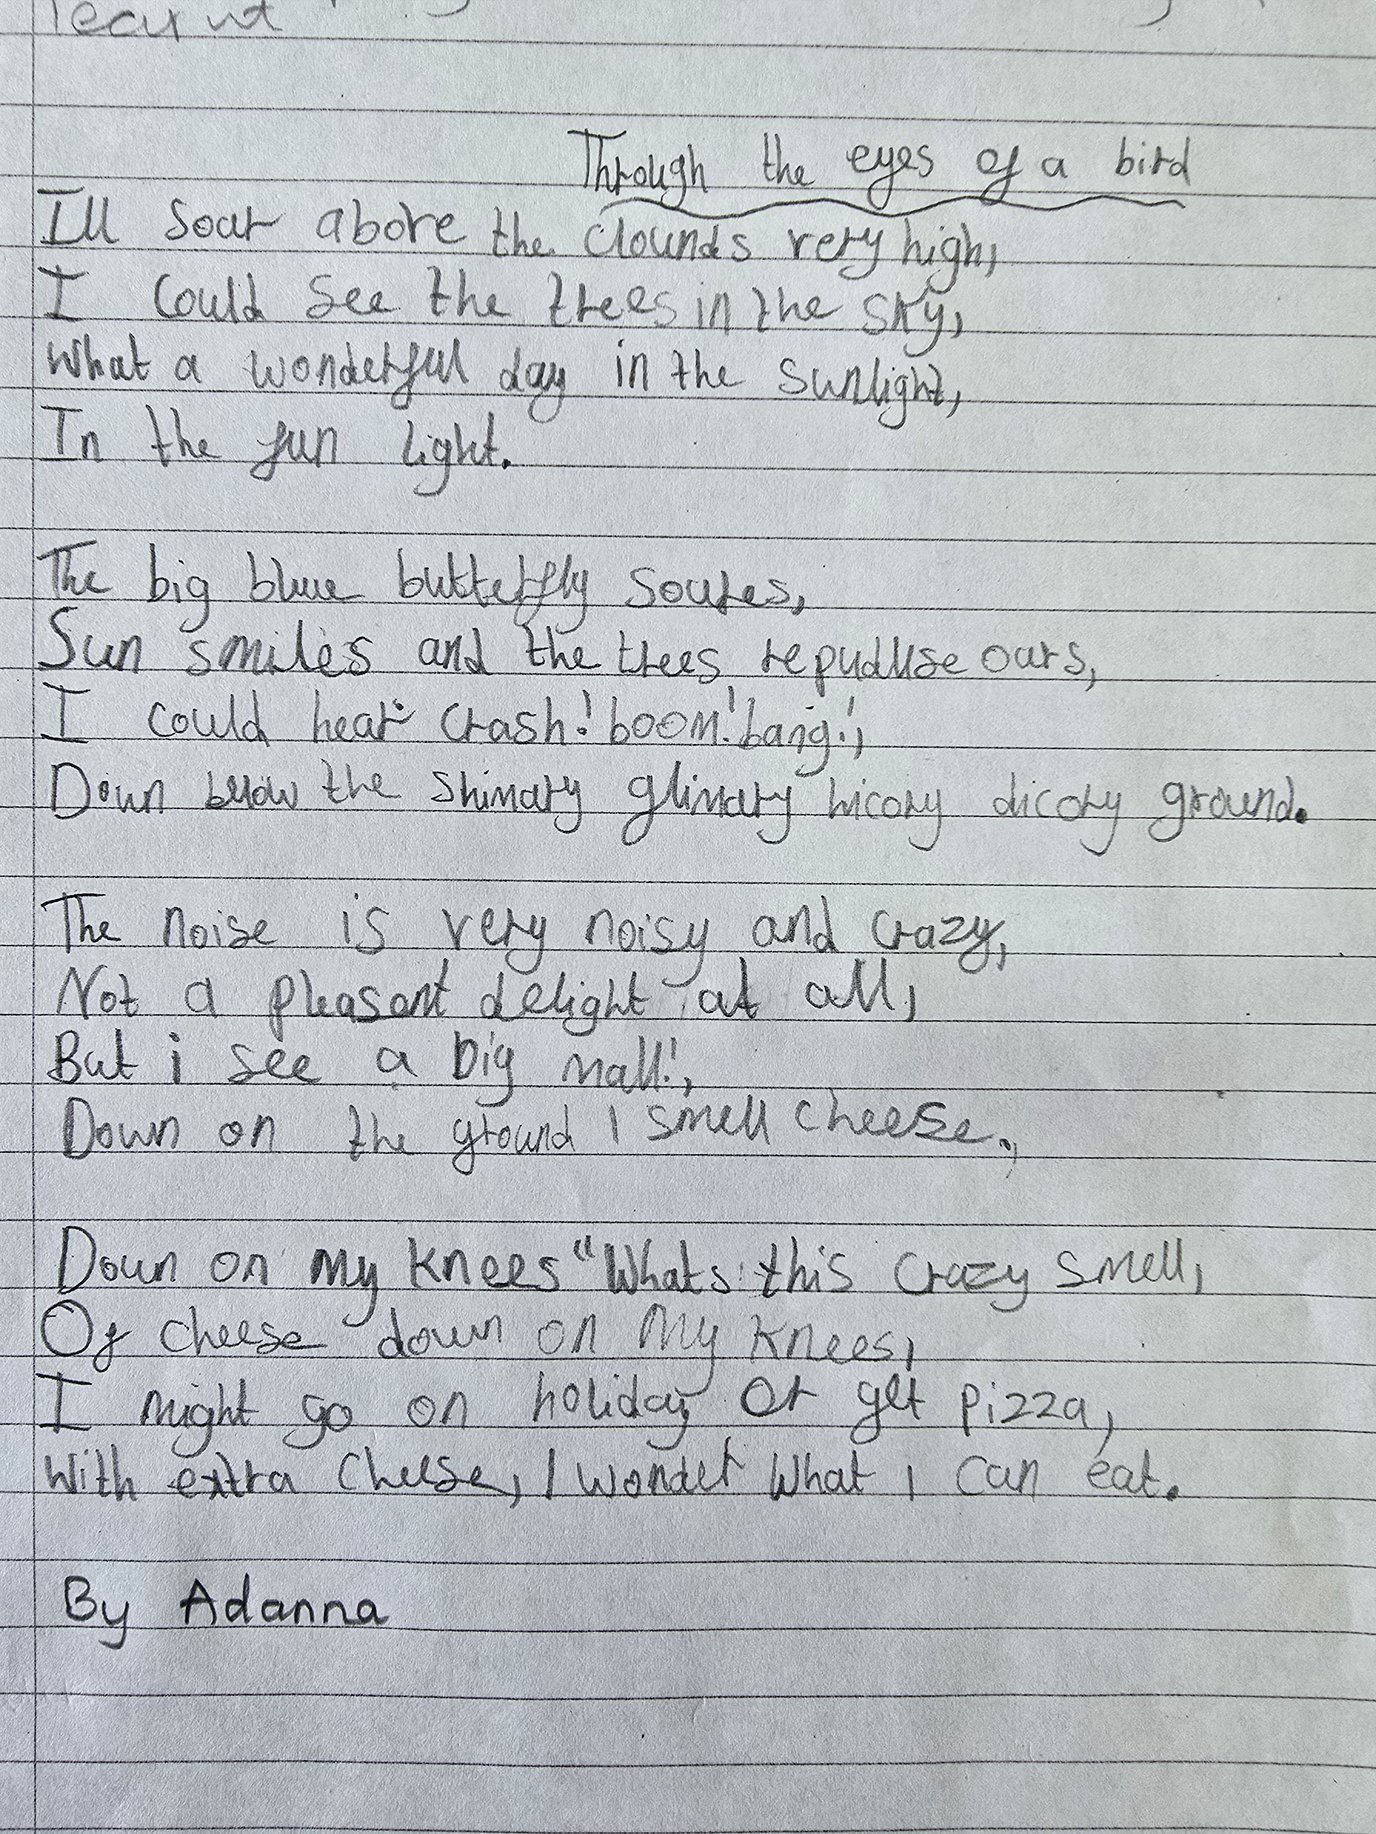 Through the eyes of a bird
Ill soar above the clounds very high,
I could see the trees in the sky,
What a wonderful day in the sunlight,
In the fun light.
The big blue butterfly soures,
Sun smiles and the trees repuduse ours,
I could hear crash! boom! bang!,
Down below the shimary glimary hicory dicory ground.
The noise is very noisy and crazy,
Not a pleasant delight at all,
But i see a big mall!,
Down on the ground I smell cheese.,
Down on my knees "Whats this crazy smell,
Of cheese down on my knees,
I might go on holiday or get pizza,
With extra cheese, I wonder what I can eat.
By Adanna